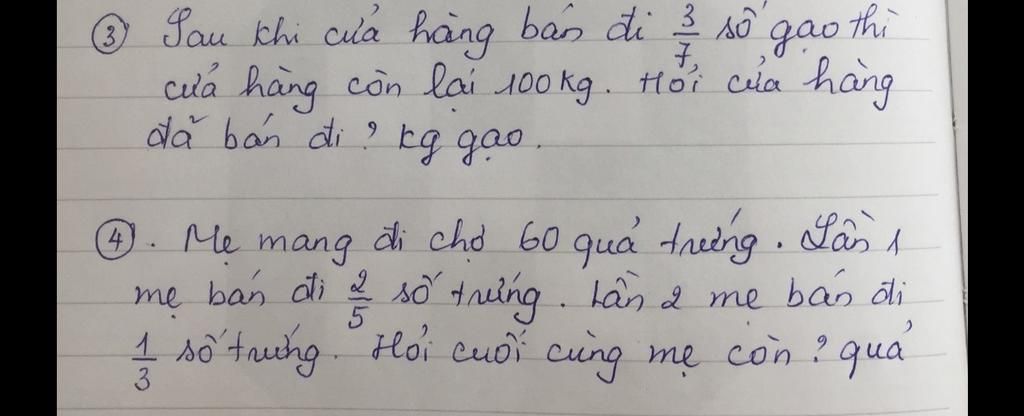 ③ Sau khi cửa hàng bán đi 3/7 số gạo thì
cửa hàng còn lại 100kg. Hỏi cửa hàng
đã bán đi ? kg gạo.
④. Mẹ mang đi chợ 60 quả trứng. Lần 1
mẹ bán đi 2/5 số trứng. Lần 2 mẹ bán đi
1/3 số trứng. Hỏi cuối cùng mẹ còn ? quả